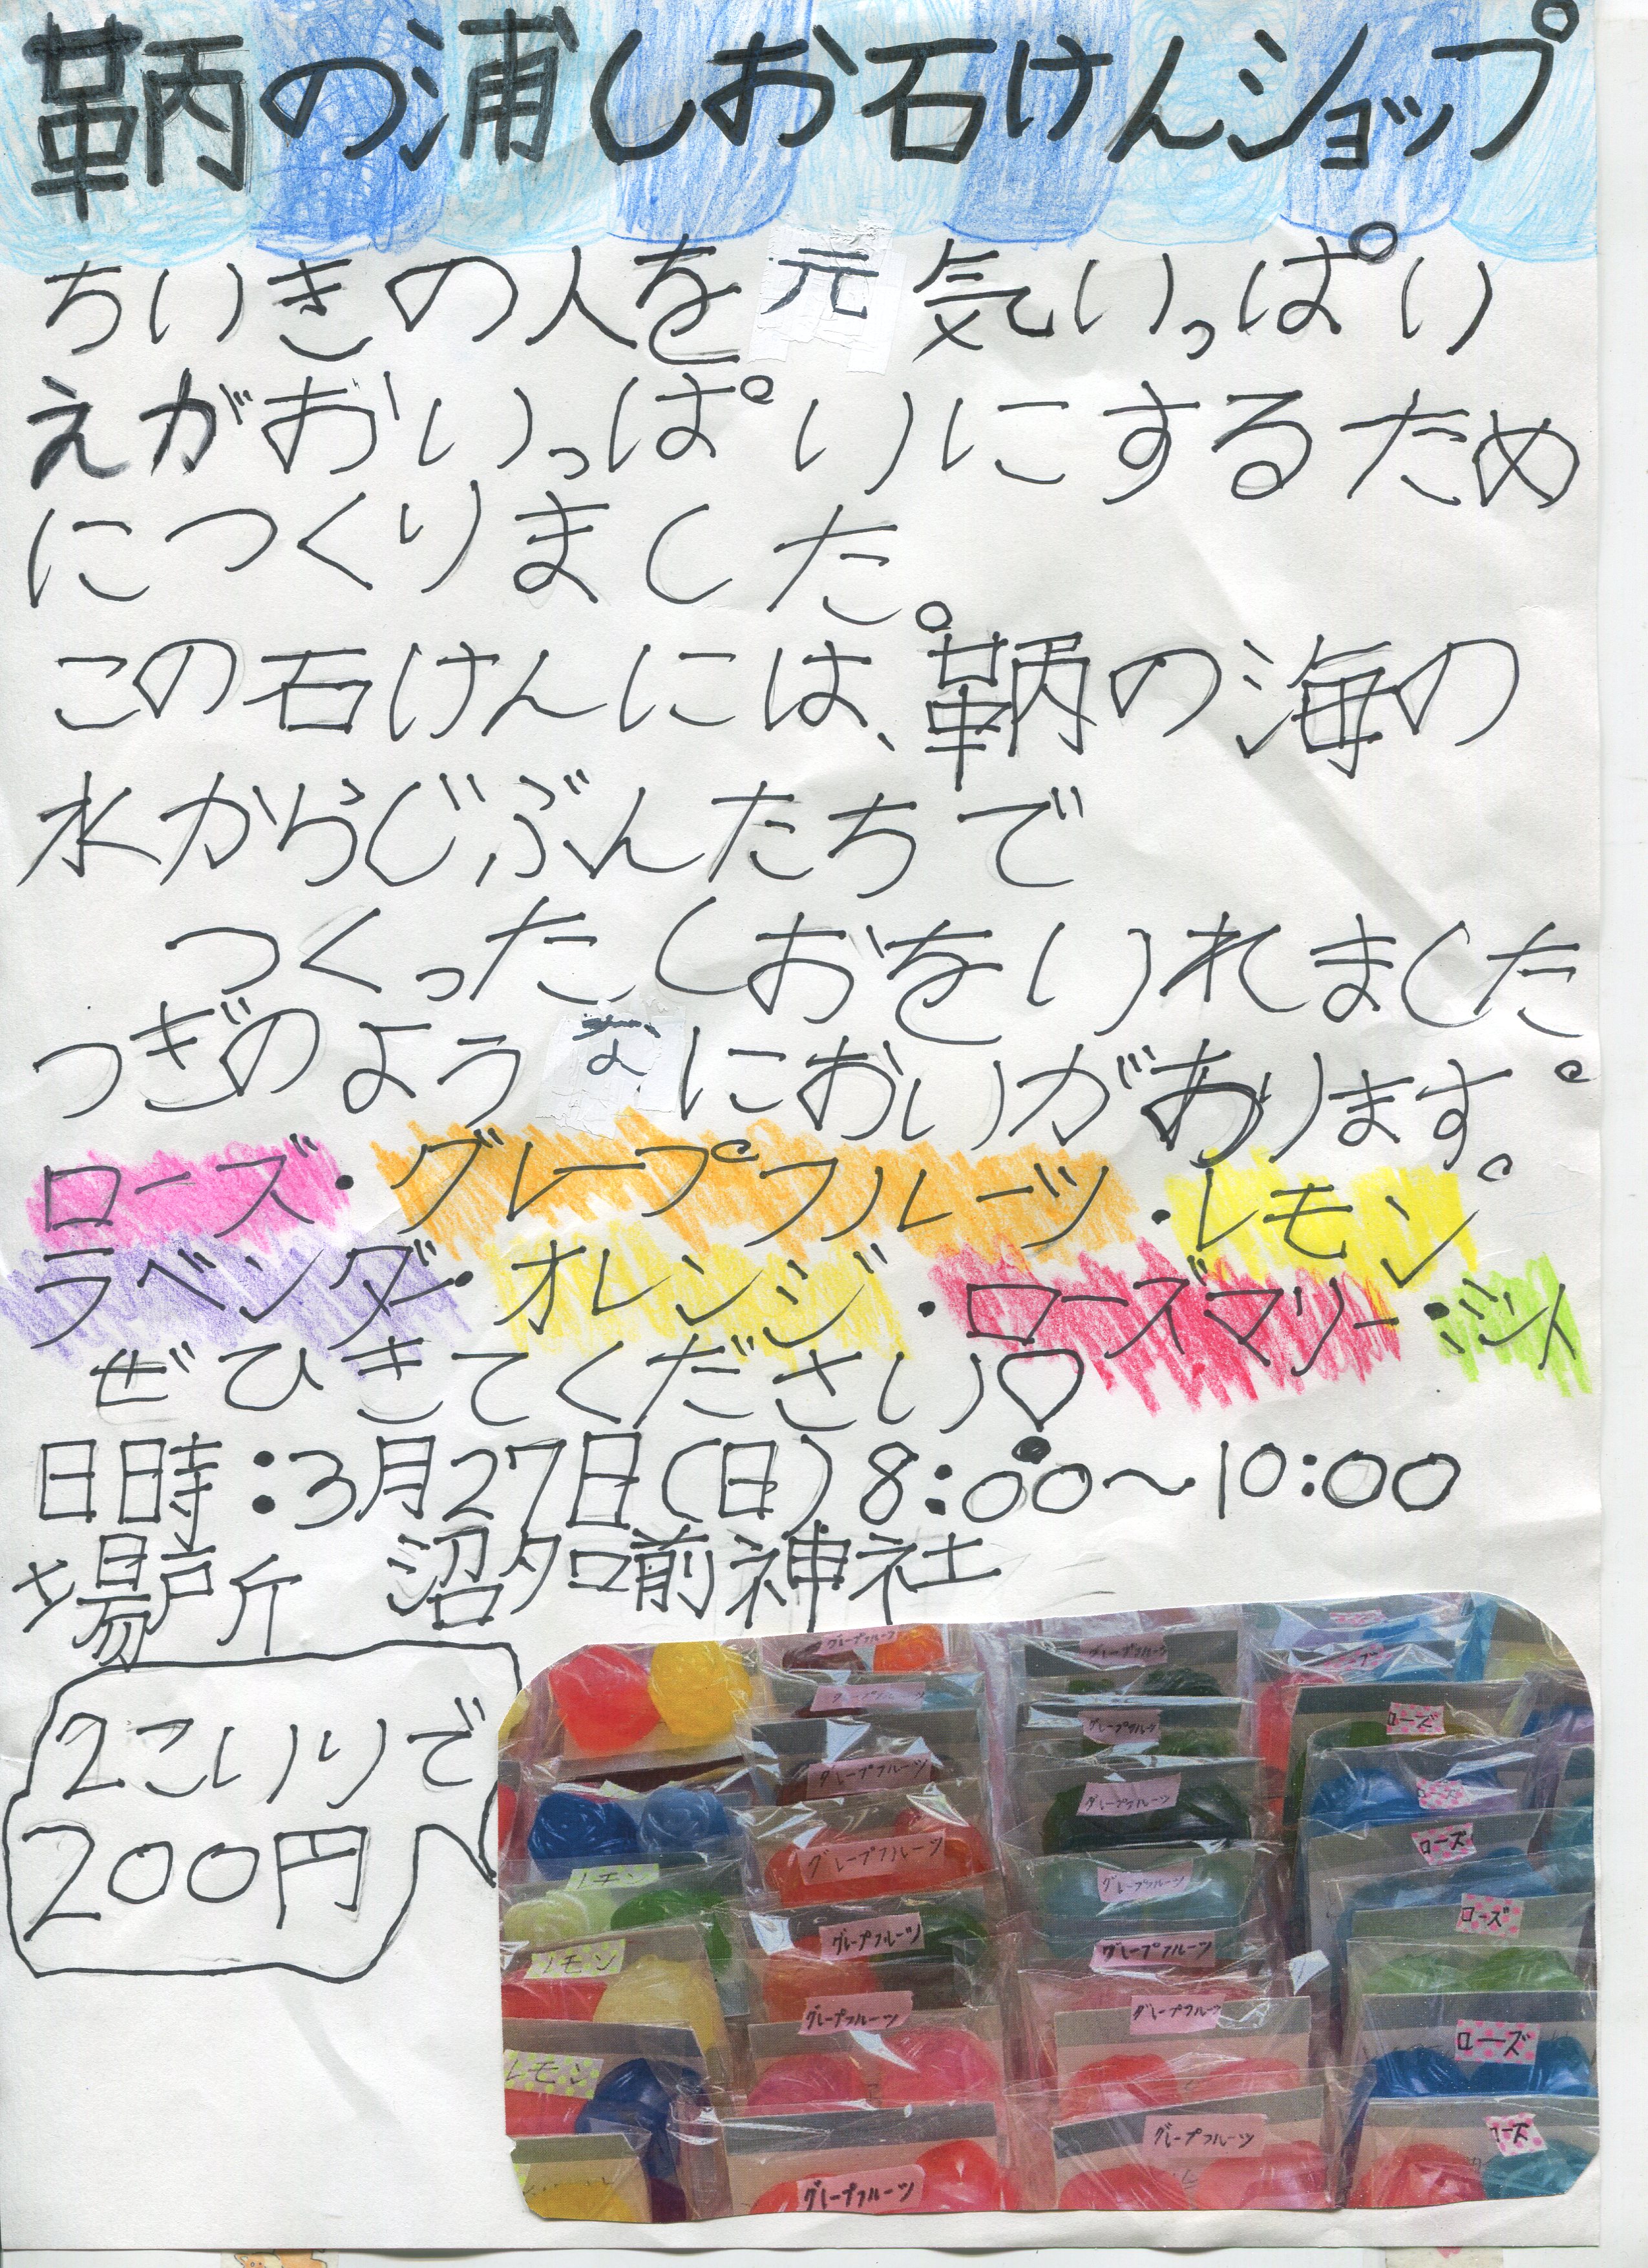 鞆の浦しお石けんショップ
ちいきの人を元気いっぱい
えがおいっぱいにするため
につくりました。
この石けんには、鞆の海の
水からじぶんたちで
つくったしおをいれました。
つぎのようなにおいがあります。
ローズ・グレープフルーツ・レモン
ラベンダー・オレンジ・ローズマリー・ミント
ぜひきてください♡
日時:3月27日(日)8:00〜10:00
場所 沼名前神社
2こいりで
200円
グレープフルーツ
グレープフルーツ
ローズ
グレープフルーツ
グレープフルーツ
ローズ
グレープフルーツ
グレープフルーツ
ローズ
グレープフルーツ
グレープフルーツ
ローズ
レモン
グレープフルーツ
グレープフルーツ
ローズ
レモン
グレープフルーツ
グレープフルーツ
ローズ
レモン
グレープフルーツ
グレープフルーツ